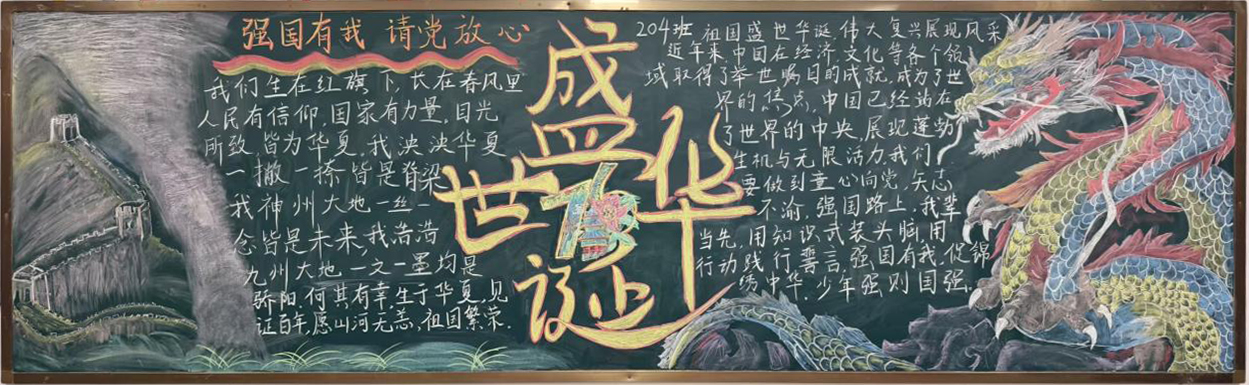 强国有我 请党放心
我们生在红旗下,长在春风里
人民有信仰,国家有力量,目光
所致皆为华夏,我泱泱华夏
一撇一捺皆是脊梁
我神州大地一丝一
念皆是未来,我浩浩
九州大地一文一墨均是
骄阳何其有幸生于华夏,见
证百年愿山河无恙,祖国繁荣.
盛
世
华
诞
204班 祖国盛世华诞,伟大复兴展现风采
近年来中国在经济,文化等各个领
域取得了举世瞩目的成就,成为了世
界的焦点,中国已经站在
了世界的中央,展现蓬勃
生机与无限活力,我们
要做到童心向党,矢志
不渝,强国路上,我辈
当先,用知识武装头脑,用
行动践行誓言,强国有我,促锦
绣中华,少年强则国强.